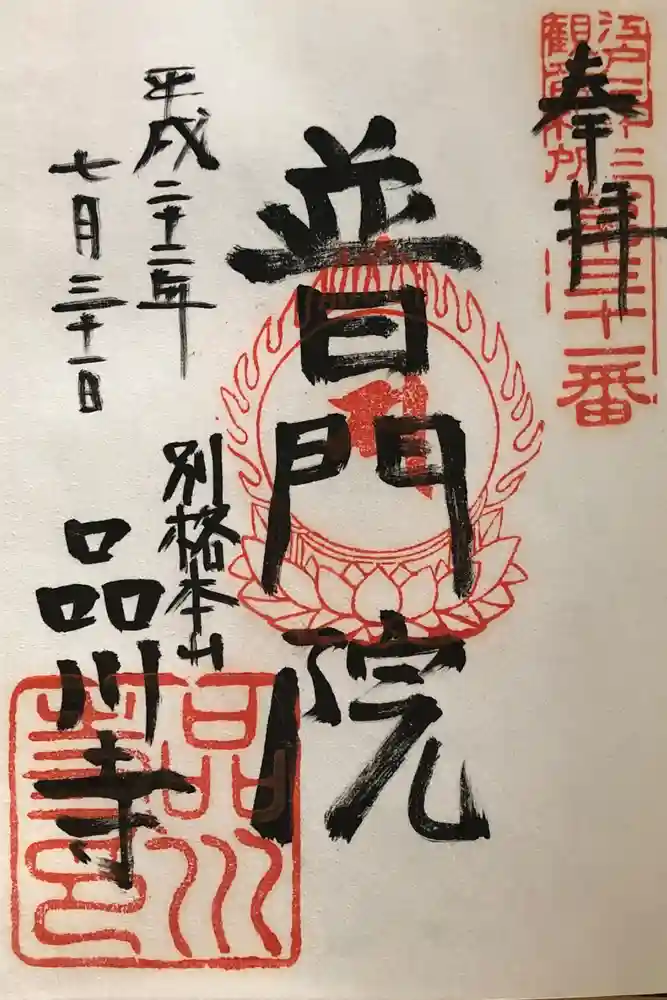 奉拝
江戸三十三
観音札所
第三十一番
普門院
別格本山
品川寺
平成二十二年
七月三十一日
品川
寺印